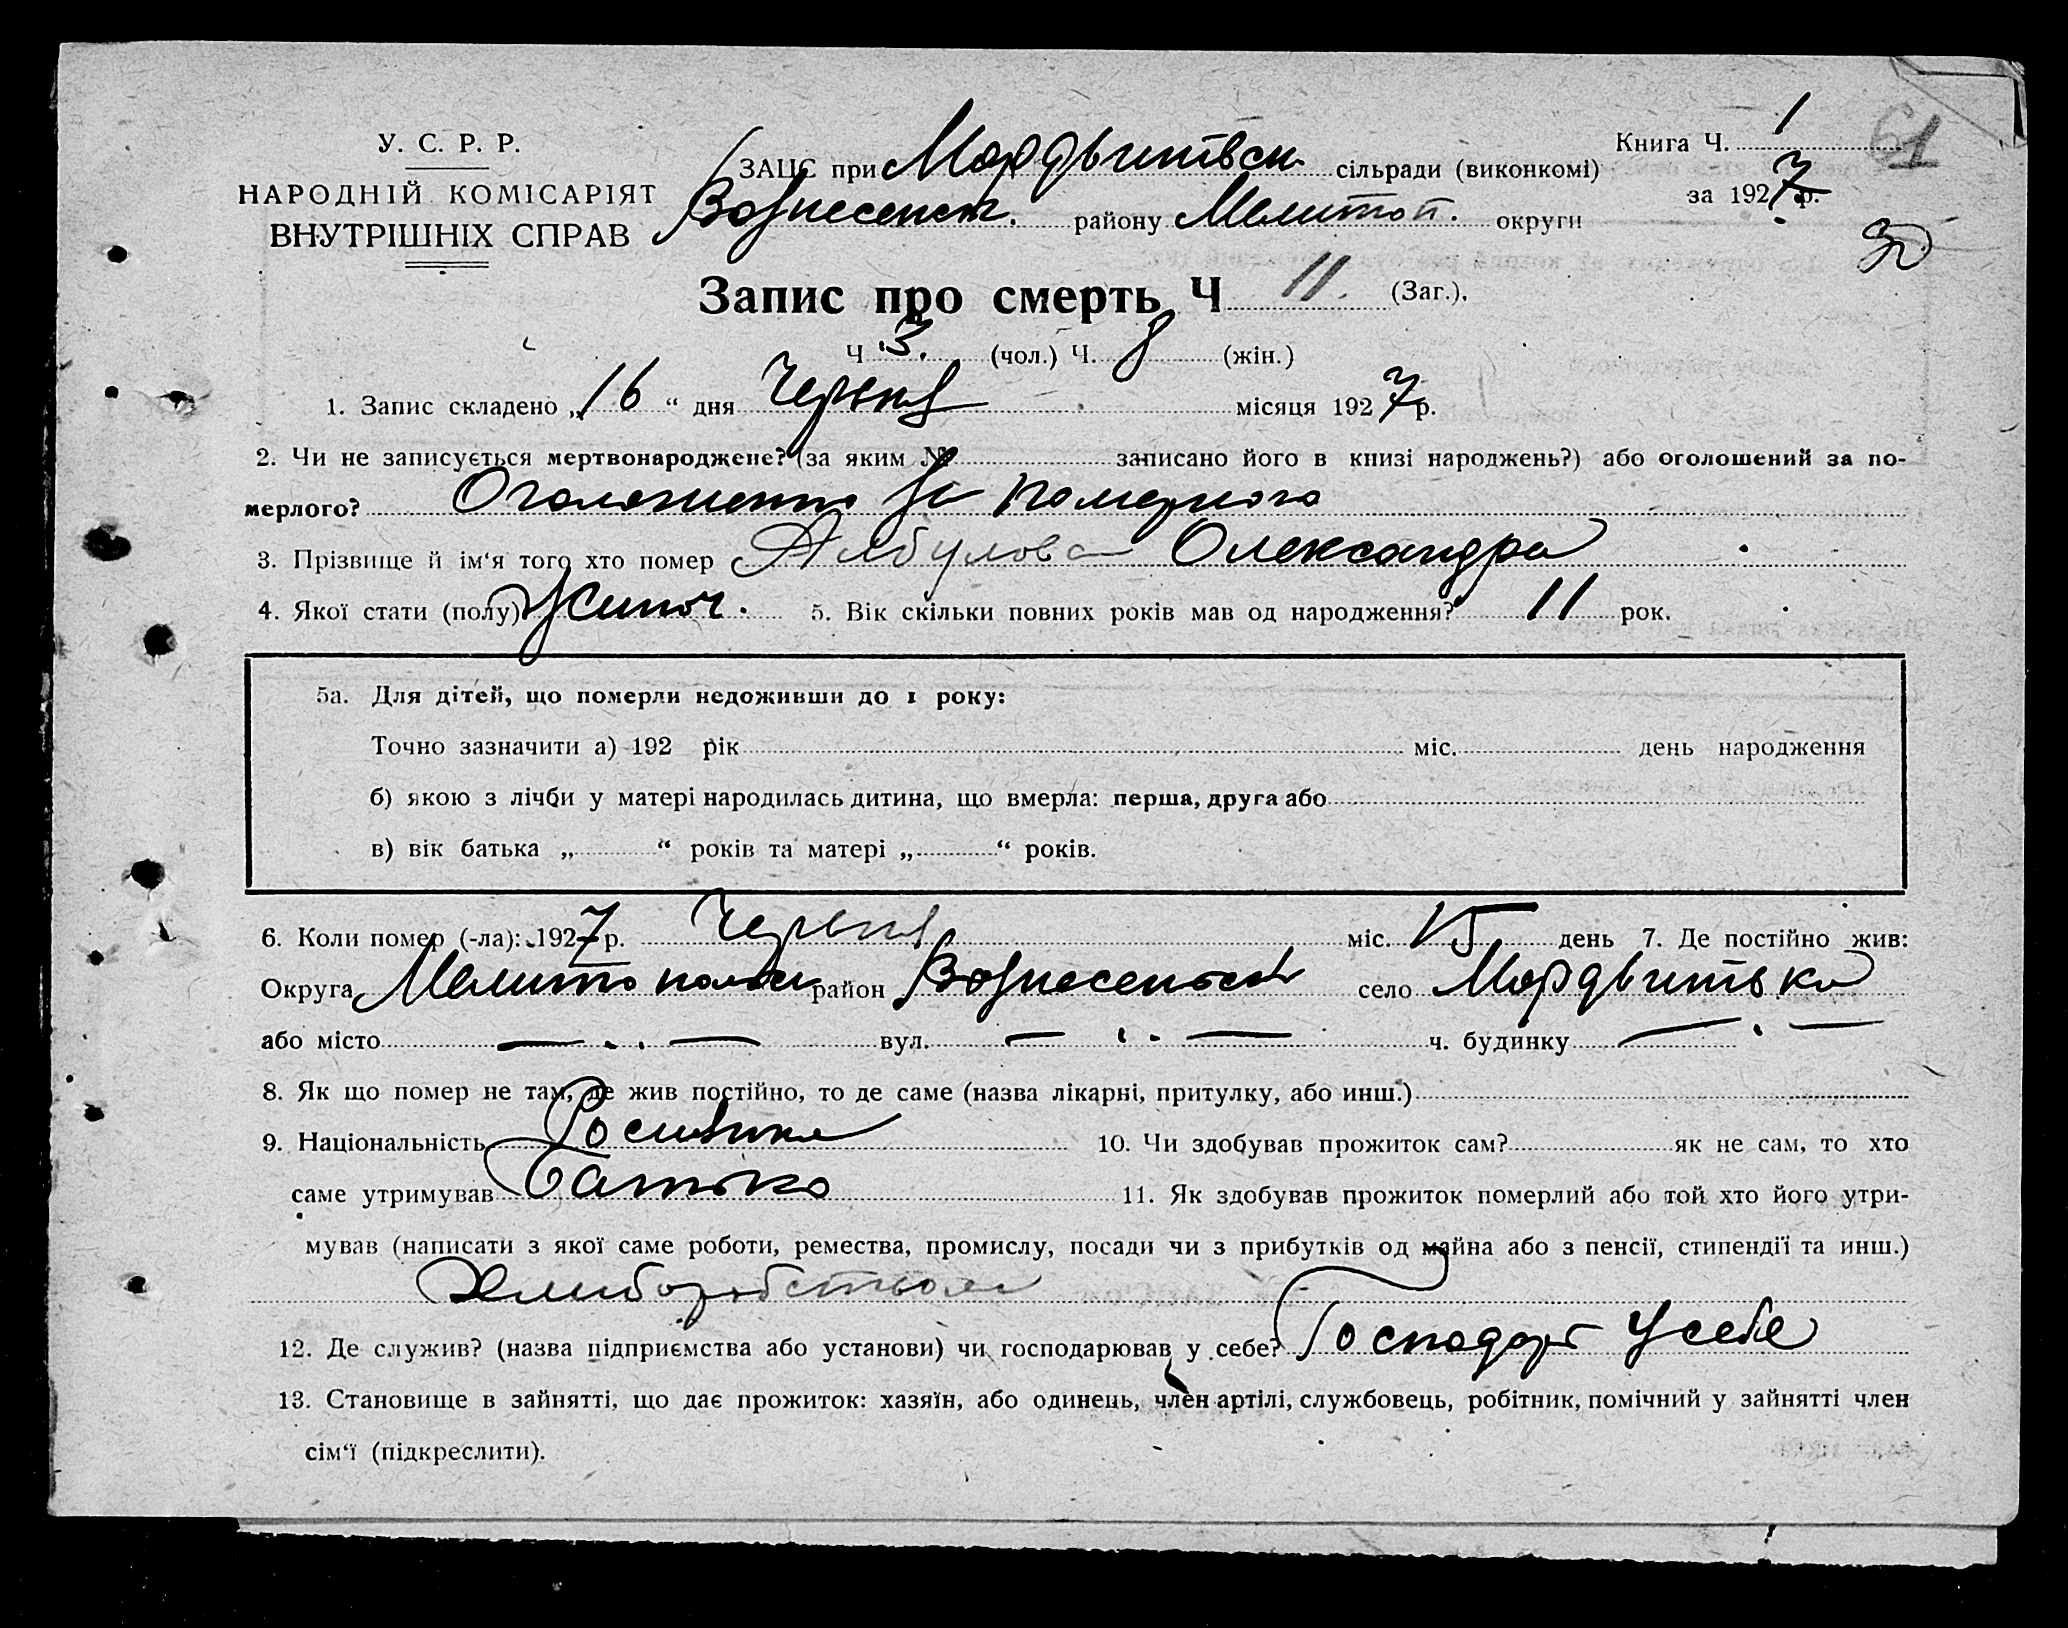 У. С. Р. Р.
НАРОДНІЙ КОМІСАРІЯТ
ВНУТРІШНІХ СПРАВ
ЗАЦС при Мордвинівск. сільради (виконкомі)
Вознесенск. району Мелитоп. округи
Книга Ч. 1
за 1927 р.
61
Запис про смерть Ч 11. (Заг.).
Ч 3. (чол.) Ч. 8 (жін.)
1. Запис складено „16“ дня Червня місяця 1927 р.
2. Чи не записується мертвонароджене? (за яким № записано його в книзі народжень?) або оголошений за по-
мерлого? за померлого
3. Прізвище й ім‘я того хто помер Олександра
4. Якої стати (полу) Жиноч. 5. Вік скільки повних років мав од народження? 11 рок.
5а. Для дітей, що померли недоживши до 1 року:
Точно зазначити а) 192 рік міс. день народження
б) якою з лічби у матері народилась дитина, що вмерла: перша, друга або
в) вік батька „ “ років та матері „ “ років.
6. Коли помер (-ла): 1927 р. Червня міс. 15 день 7. Де постійно жив:
Округа Мелитопольск район Вознесенськ село
або місто — — вул. — — ч. будинку — —
8. Як що помер не там, де жив постійно, то де саме (назва лікарні, притулку, або инш.)
9. Національність 10. Чи здобував прожиток сам? як не сам, то хто
саме утримував Батько 11. Як здобував прожиток померлий або той хто його утри-
мував (написати з якої саме роботи, ремества, промислу, посади чи з прибутків од майна або з пенсії, стипендії та инш.)
Хлиборобством
12. Де служив? (назва підприємства або установи) чи господарював у себе? у себе
13. Становище в зайнятті, що дає прожиток: хазяїн, або одинець, член артілі, службовець, робітник, помічний у зайнятті член
сім‘ї (підкреслити).